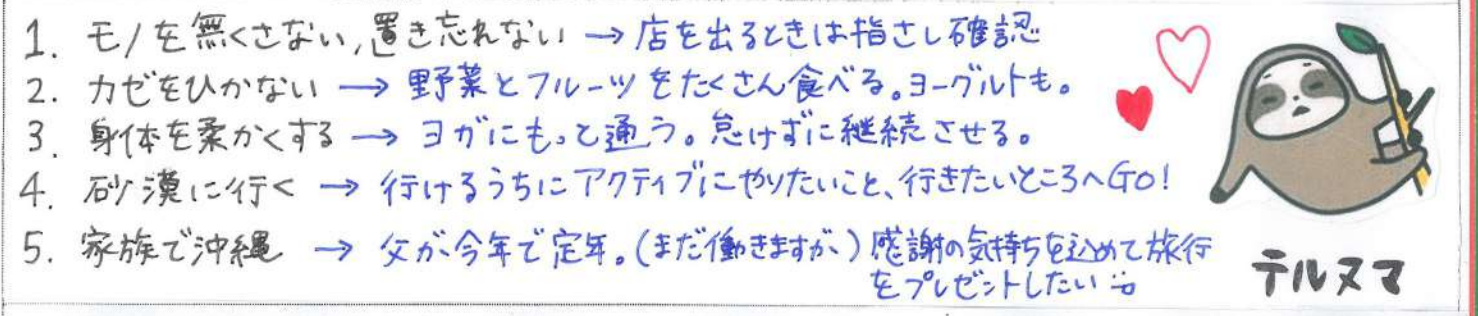 1. モノを無くさない,置き忘れない → 店を出るときは指さし確認
2. カゼをひかない → 野菜とフルーツをたくさん食べる。ヨーグルトも。
3. 身体を柔かくする → ヨガにもっと通う。怠けずに継続させる。
4. 砂漠に行く → 行けるうちにアクティブにやりたいこと、行きたいところへGO!
5. 家族で沖縄 → 父が今年で定年。(まだ働きますが、)感謝の気持ちを込めて旅行
をプレゼントしたい
テルヌマ